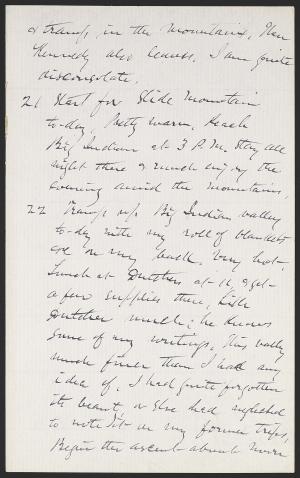 & tramp, in the mountains, Van
Kennedy also leaves. I am quite
disconsolate.
21 Start for Slide Mountain
to-day, Pretty warm, Reach
Big Indian at 3 P.M. Stay all
night there & much enjoy the
evening amid the mountains,
22 Tramp up Big Indian valley
to-day with my roll of blankets
etc on my back. Very hot,
Lunch at Dutchers at 11, & get
a few supplies there, Like
Dutcher much; he knows
some of my writings, This valley
much finer than I had any
idea of, I had quite forgotten
its beauty, or else had neglected
to note it on my former trips,
Begin the ascent about noon